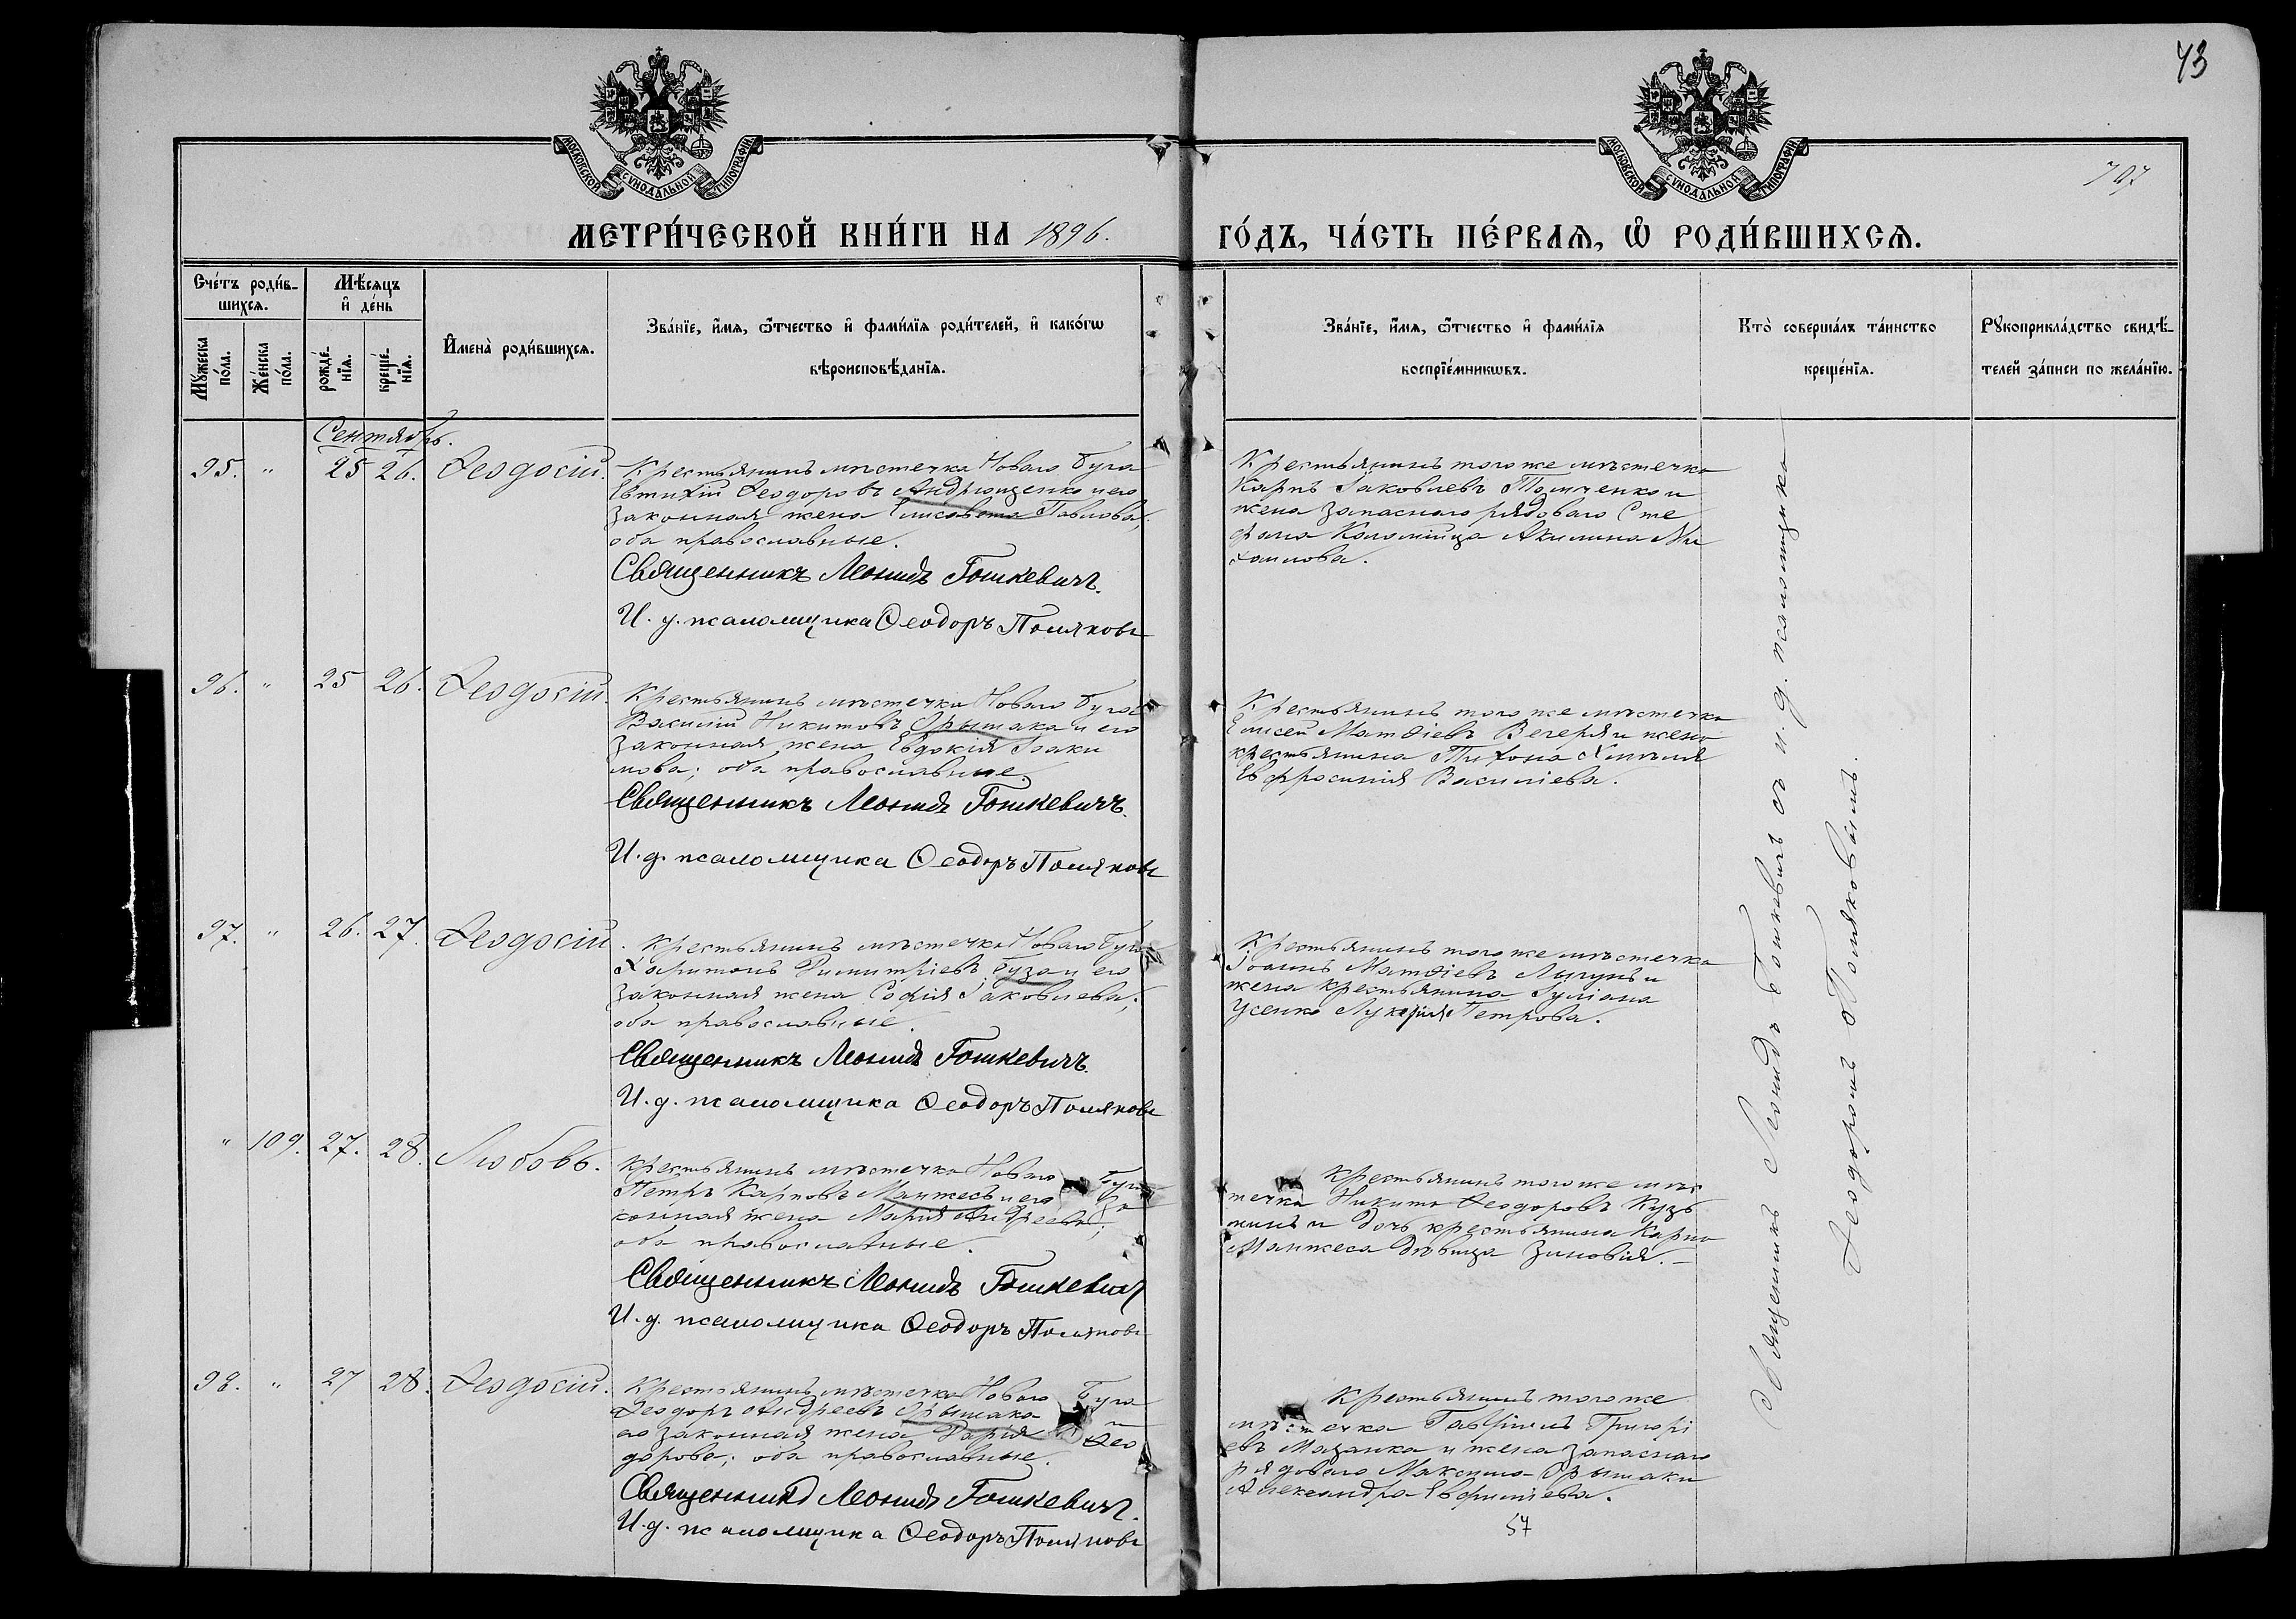 43
МОСКОВСКОЙ СѴНОДАЛЬНОЙ ТИПОГРАФІИ
МОСКОВСКОЙ СѴНОДАЛЬНОЙ ТИПОГРАФІИ
707
МЕТРИ́ЧЕСКОЙ КНИ́ГИ НА 1896.
ГО́ДЪ, ЧА́СТЬ ПЕ́РВАѦ, Ѡ҆ РОДИ́ВШИХСѦ.
Сче́тъ роди́в-
шихсѧ.
Му́жеска по́ла.
Же́нска по́ла.
Мѣ́сѧцъ
и҆ де́нь
рожде́-нїѧ.
креще́-нїѧ.
И҆мена̀ роди́вшихсѧ.
Зва́нїе, и҆́мѧ, ѻ҆́тчество и҆ фами́лїѧ роди́телей, и҆ како́гѡ
вѣроисповѣ́данїѧ.
Зва́нїе, и҆́мѧ, ѻ҆́тчество и҆ фами́лїѧ
воспрїе́мникѡвъ.
Кто̀ соверша́лъ та́инство
креще́нїѧ.
Рꙋкоприкла́дство свидѣ́-
телей за́писи по жела́нїю.
Сентябрь.
95. " 25 26. Ѳеодосій.
Крестьянинъ мѣстечка Новаго Буга
Евтихій Ѳеодоровъ Андрющенко и его
законная жена Елисавета Павлова;
оба православные.
Священникъ Леонидъ Гошкевичъ.
И. д. псаломщика Ѳеодоръ Поляковъ
Крестьянинъ того же мѣстечка
Карпъ Іаковлевъ Томченко и
жена запаснаго рядоваго Сте
фана Коломійца Акилина Ми
хаилова.
96. " 25 26. Ѳеодосій.
Крестьянинъ мѣстечка Новаго Буга
Василій Никитовъ Орышака и его
законная жена Евдокія Іоаки
мова; оба православные.
Священникъ Леонидъ Гошкевичъ.
И. д. псаломщика Ѳеодоръ Поляковъ
Крестьянинъ того же мѣстечка
Елисей Матѳіевъ Вечеря и жена
крестьянина Тихона
Евфросинія Василіева.
97. " 26. 27. Ѳеодосій.
Крестьянинъ мѣстечка Новаго Буга
Харитонъ Димитріевъ Буза и его
законная жена Софія Іаковлева;
оба православные.
Священникъ Леонидъ Гошкевичъ.
И. д. псаломщика Ѳеодоръ Поляковъ
Крестьянинъ того же мѣстечка
Іоаннъ Матѳіевъ и
жена крестьянина Іуліана
Усенко Лукерія Петрова.
" 109. 27. 28. Любовь.
Крестьянинъ мѣстечка Новаго Буга
Петръ Карповъ Манжесъ и его за
конная жена Марія Андреева;
оба православные.
Священникъ Леонидъ Гошкевич
И. д. псаломщика Ѳеодоръ Поляковъ
Крестьянинъ того же мѣс
течка Никита Ѳеодоровъ Кузь
минъ и дочь крестьянина Карпа
Манжеса девица Зиновія.
98. " 27 28. Ѳеодосій.
Крестьянинъ мѣстечка Новаго Буга
Ѳеодоръ Андреевъ Орышака и
его законная жена Дарія Ѳео
дорова; оба православные.
Священникъ Леонидъ Гошкевичъ.
И. д. псаломщика Ѳеодоръ Поляковъ
Крестьянинъ того же
мѣстечка Гавріилъ Григорі
евъ Мазанка и жена запаснаго
рядоваго Максима Орышаки
Александра Евфиміева.
57
Священникъ Леонидъ Гошкевичъ съ и. д. псаломщика
Ѳеодоромъ Поляковымъ.